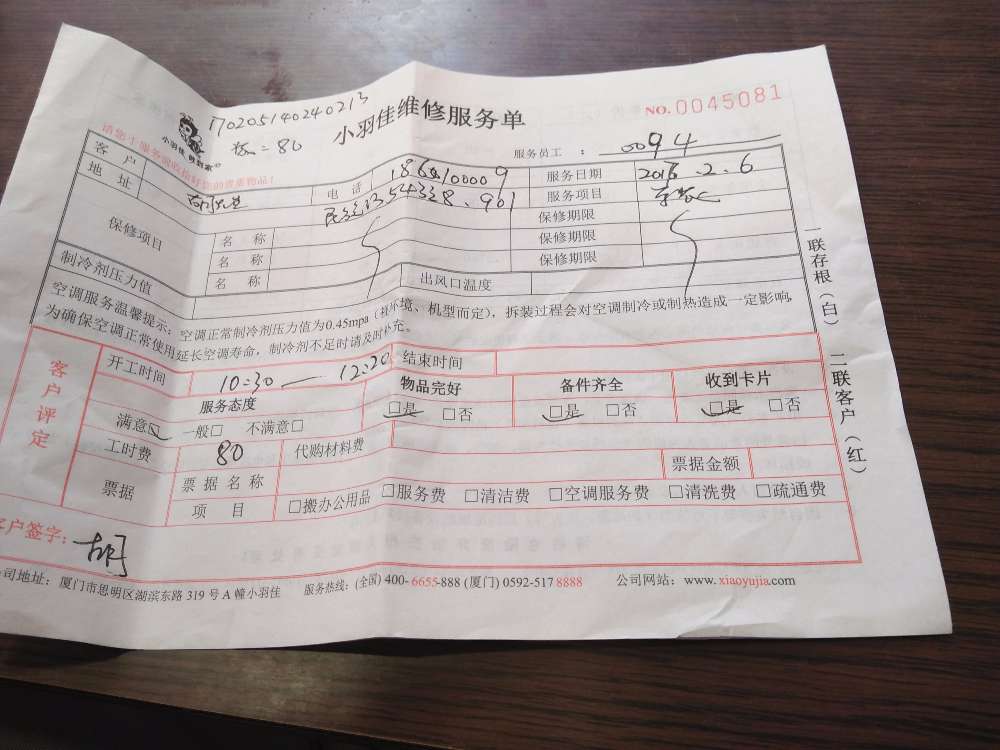 170205140240213
小羽佳维修服务单
NO.0045081
小羽佳 帮到家
= 80
服务员工 : 0094
请您于服务前收拾好您的贵重物品!
客户
电话
服务日期 .2.6
地址
服务项目
保修项目
名称 保修期限
名称 保修期限
名称 保修期限
制冷剂压力值 出风口温度
空调服务温馨提示:空调正常制冷剂压力值为0.45mpa(视环境、机型而定),拆装过程会对空调制冷或制热造成一定影响,
为确保空调正常使用延长空调寿命,制冷剂不足时请及时补充。
客户评定
开工时间 10:30 — 12:20 结束时间
服务态度 物品完好 备件齐全 收到卡片
满意□ 一般□ 不满意□ □是 □否 □是 □否 □是 □否
工时费 80 代购材料费
票据 票据名称 票据金额
项目 □搬办公用品 □服务费 □清洁费 □空调服务费 □清洗费 □疏通费
客户签字: 胡
公司地址:厦门市思明区湖滨东路 319 号 A 幢小羽佳 服务热线:(全国) 400-6655-888 (厦门) 0592-517 8888 公司网站:www.xiaoyujia.com
一联存根(白) 二联客户(红)